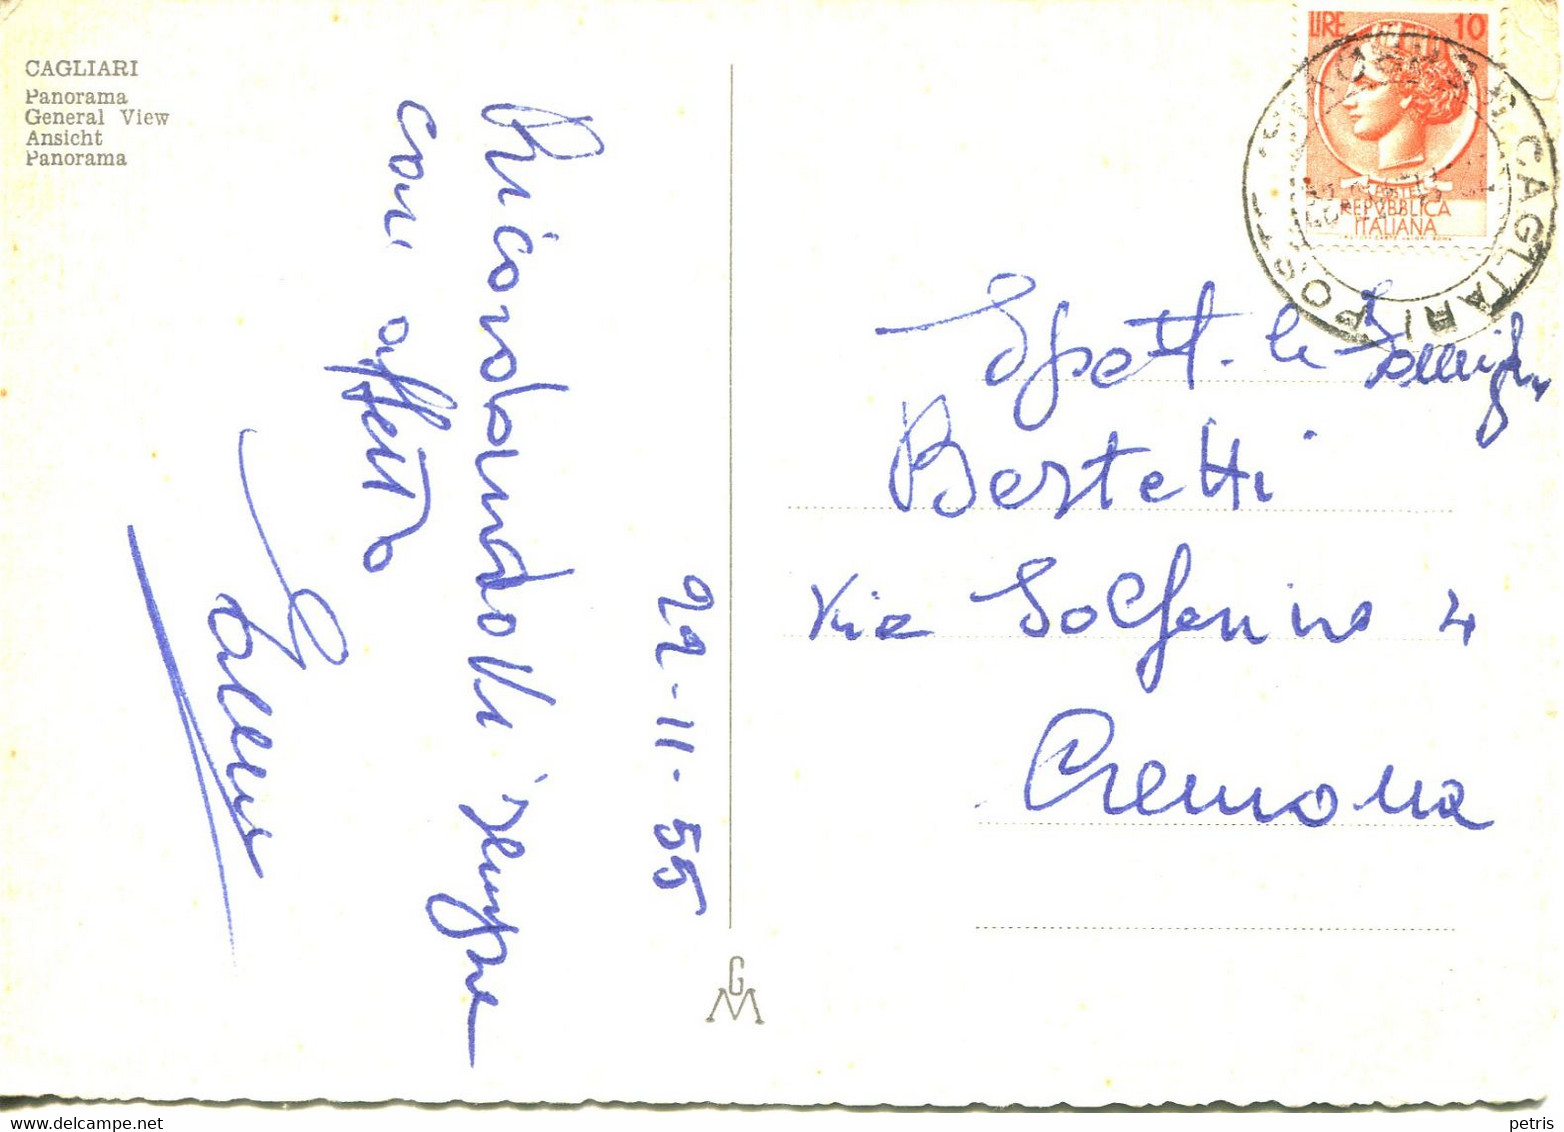 CAGLIARI
Panorama
General View
Ansicht
Panorama
Ricordandovi sempre
con affetto
22-11-55
LIRE 10
REPVBBLICA
ITALIANA
CAGLIARI POSTE
Spett. le Famiglia
Bertetti
Via Solferino 4
Cremona
GM
delcampe.net
petris